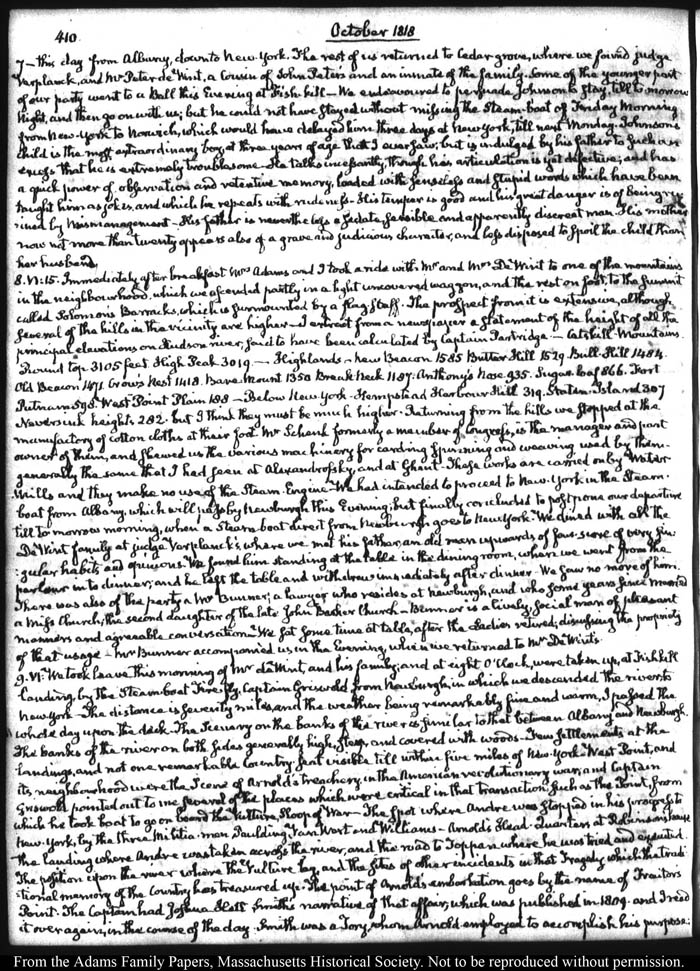 410
October 1818
7 — this day from Albany, down to New-York. The rest of us returned to Cedar-grove, where we found judge
Verplanck, and Mr Peter de Wint, a Cousin of John Peters and an inmate of the family. Some of the younger part
of our party went to a Ball this Evening at Fish-kill — We endeavoured to persuade Johnson to stay, till to-morrow
Night, and then go on with us; but he could not have stayed without missing the Steam-boat of Friday Morning
from New-York to Norwich, which would have delayed him three days at New York, till next Monday. Johnson's
child is the most extraordinary boy, at three years of age that I ever saw; but is indulged by his father to such an
excess that he is extremely troublesome — He talks incessantly, though his articulation is yet defective; and has
a quick power of observation and retentive memory, loaded with senseless and stupid words which have been
taught him as jokes, and which he repeats with rudeness — His temper is good and his great danger is of being ru-
ined by Mismanagement — His father is nevertheless a sedate, sensible and apparently discreet man. His mother
now not more than twenty appears also of a grave and judicious character, and less disposed to spoil the child than
her husband.
8. VI:15. Immediately after breakfast Mrs Adams and I took a ride with Mr and Mrs De Wint to one of the mountains
in the neighbourhood, which we ascended partly in a light uncovered waggon, and the rest on foot, to the summit
called Solomon's Barracks, which is surmounted by a flag staff. The prospect from it is extensive, although
several of the hills in the vicinity are higher — I extract from a newspaper a statement of the height of all the
principal elevations on Hudson river, said to have been calculated by Captain Partridge — Catskill Mountains.
Round top. 3105 feet. High Peak 3019 — Highlands — New Beacon 1585 Butter Hill 1529 Bull-Hill 1484.
Old Beacon 1471. Crow's Nest 1418. Bare Mount 1350 Break Neck 1187. Anthony's Nose. 935. Sugar Loaf 866. Fort
Putnam 598. West Point Plain 188 — Below New York. Hempstead Harbour Hill 319. Staten Island 307
Neversink heights 282. but I think they must be much higher. Returning from the hills we stopped at the
manufactory of cotton cloths at their foot. Mr Schenk formerly a member of Congress, is the manager and part
owner of them, and shewed us the various machinery for carding, spinning and weaving used by them.
generally the same that I had seen at Alexandrofsky, and at Ghent. These works are carried on by Water-
Mills and they make no use of the Steam-Engine. We had intended to proceed to New-York in the Steam-
boat from Albany, which will pass by Newburgh this Evening; but finally concluded to postpone our departure
till to-morrow morning, when a Steam-boat direct from Newburgh goes to New York. We dined with all the
De Wint family at judge Verplanck's, where we met his father, an old man upwards of four-score of very sin-
gular habits and opinions. We found him standing at the table in the dining room, where we went from the
parlour in to dinner; and he left the table and withdrew immediately after dinner — We saw no more of him.
There was also of the party a Mr Bunner, a lawyer who resides at Newburgh, and who some years since married
a Miss Church, the second daughter of the late John Barker Church — Bunner is a lively, social man of pleasant
manners and agreeable conversation. We sat some time at table, after the Ladies retired; discussing the propriety
of that usage — Mr Bunner accompanied us in the Evening, when we returned to Mr De Wint's.
9. VI. We took leave this morning of Mr de Wint, and his family; and at eight O'Clock, were taken up, at Fish kill
landing, by the Steam boat Fire-fly, Captain Griswold from Newburgh, in which we descended the river to
New York — The distance is seventy miles, and the weather being remarkably fine and warm, I passed the
whole day upon the deck. The scenery on the banks of the river is similar to that between Albany and Newburgh.
The banks of the river on both sides generally high, steep, and covered with woods. Few settlements at the
landings, and not one remarkable Country-seat visible till within five miles of New-York. West Point, and
its neighbourhood were the scene of Arnold's treachery, in the American revolutionary war; and Captain
Griswold pointed out to me several of the places which were critical in that transaction. Such as the Point from
which he took boat to go on board the Vulture, Sloop of War — The spot where Andre was stopped in his progress to
New-York, by the three Militia-men Paulding, Van Wert and Williams — Arnold's Head-Quarters at Robinson's house
the landing where Andre was taken across the river, and the road to Tappan where he was tried and executed.
The position upon the river where the Vulture lay, and the sites of other incidents in that Tragedy which the tradi-
tional memory of the Country has treasured up. The point of Arnold's embarkation goes by the name of Traitors
Point. The Captain had Joshua Hett Smith's narrative of that affair, which was published in 1809. and I read
it over again, in the course of the day. Smith was a Tory, whom Arnold employed to accomplish his purpose:
From the Adams Family Papers, Massachusetts Historical Society. Not to be reproduced without permission.